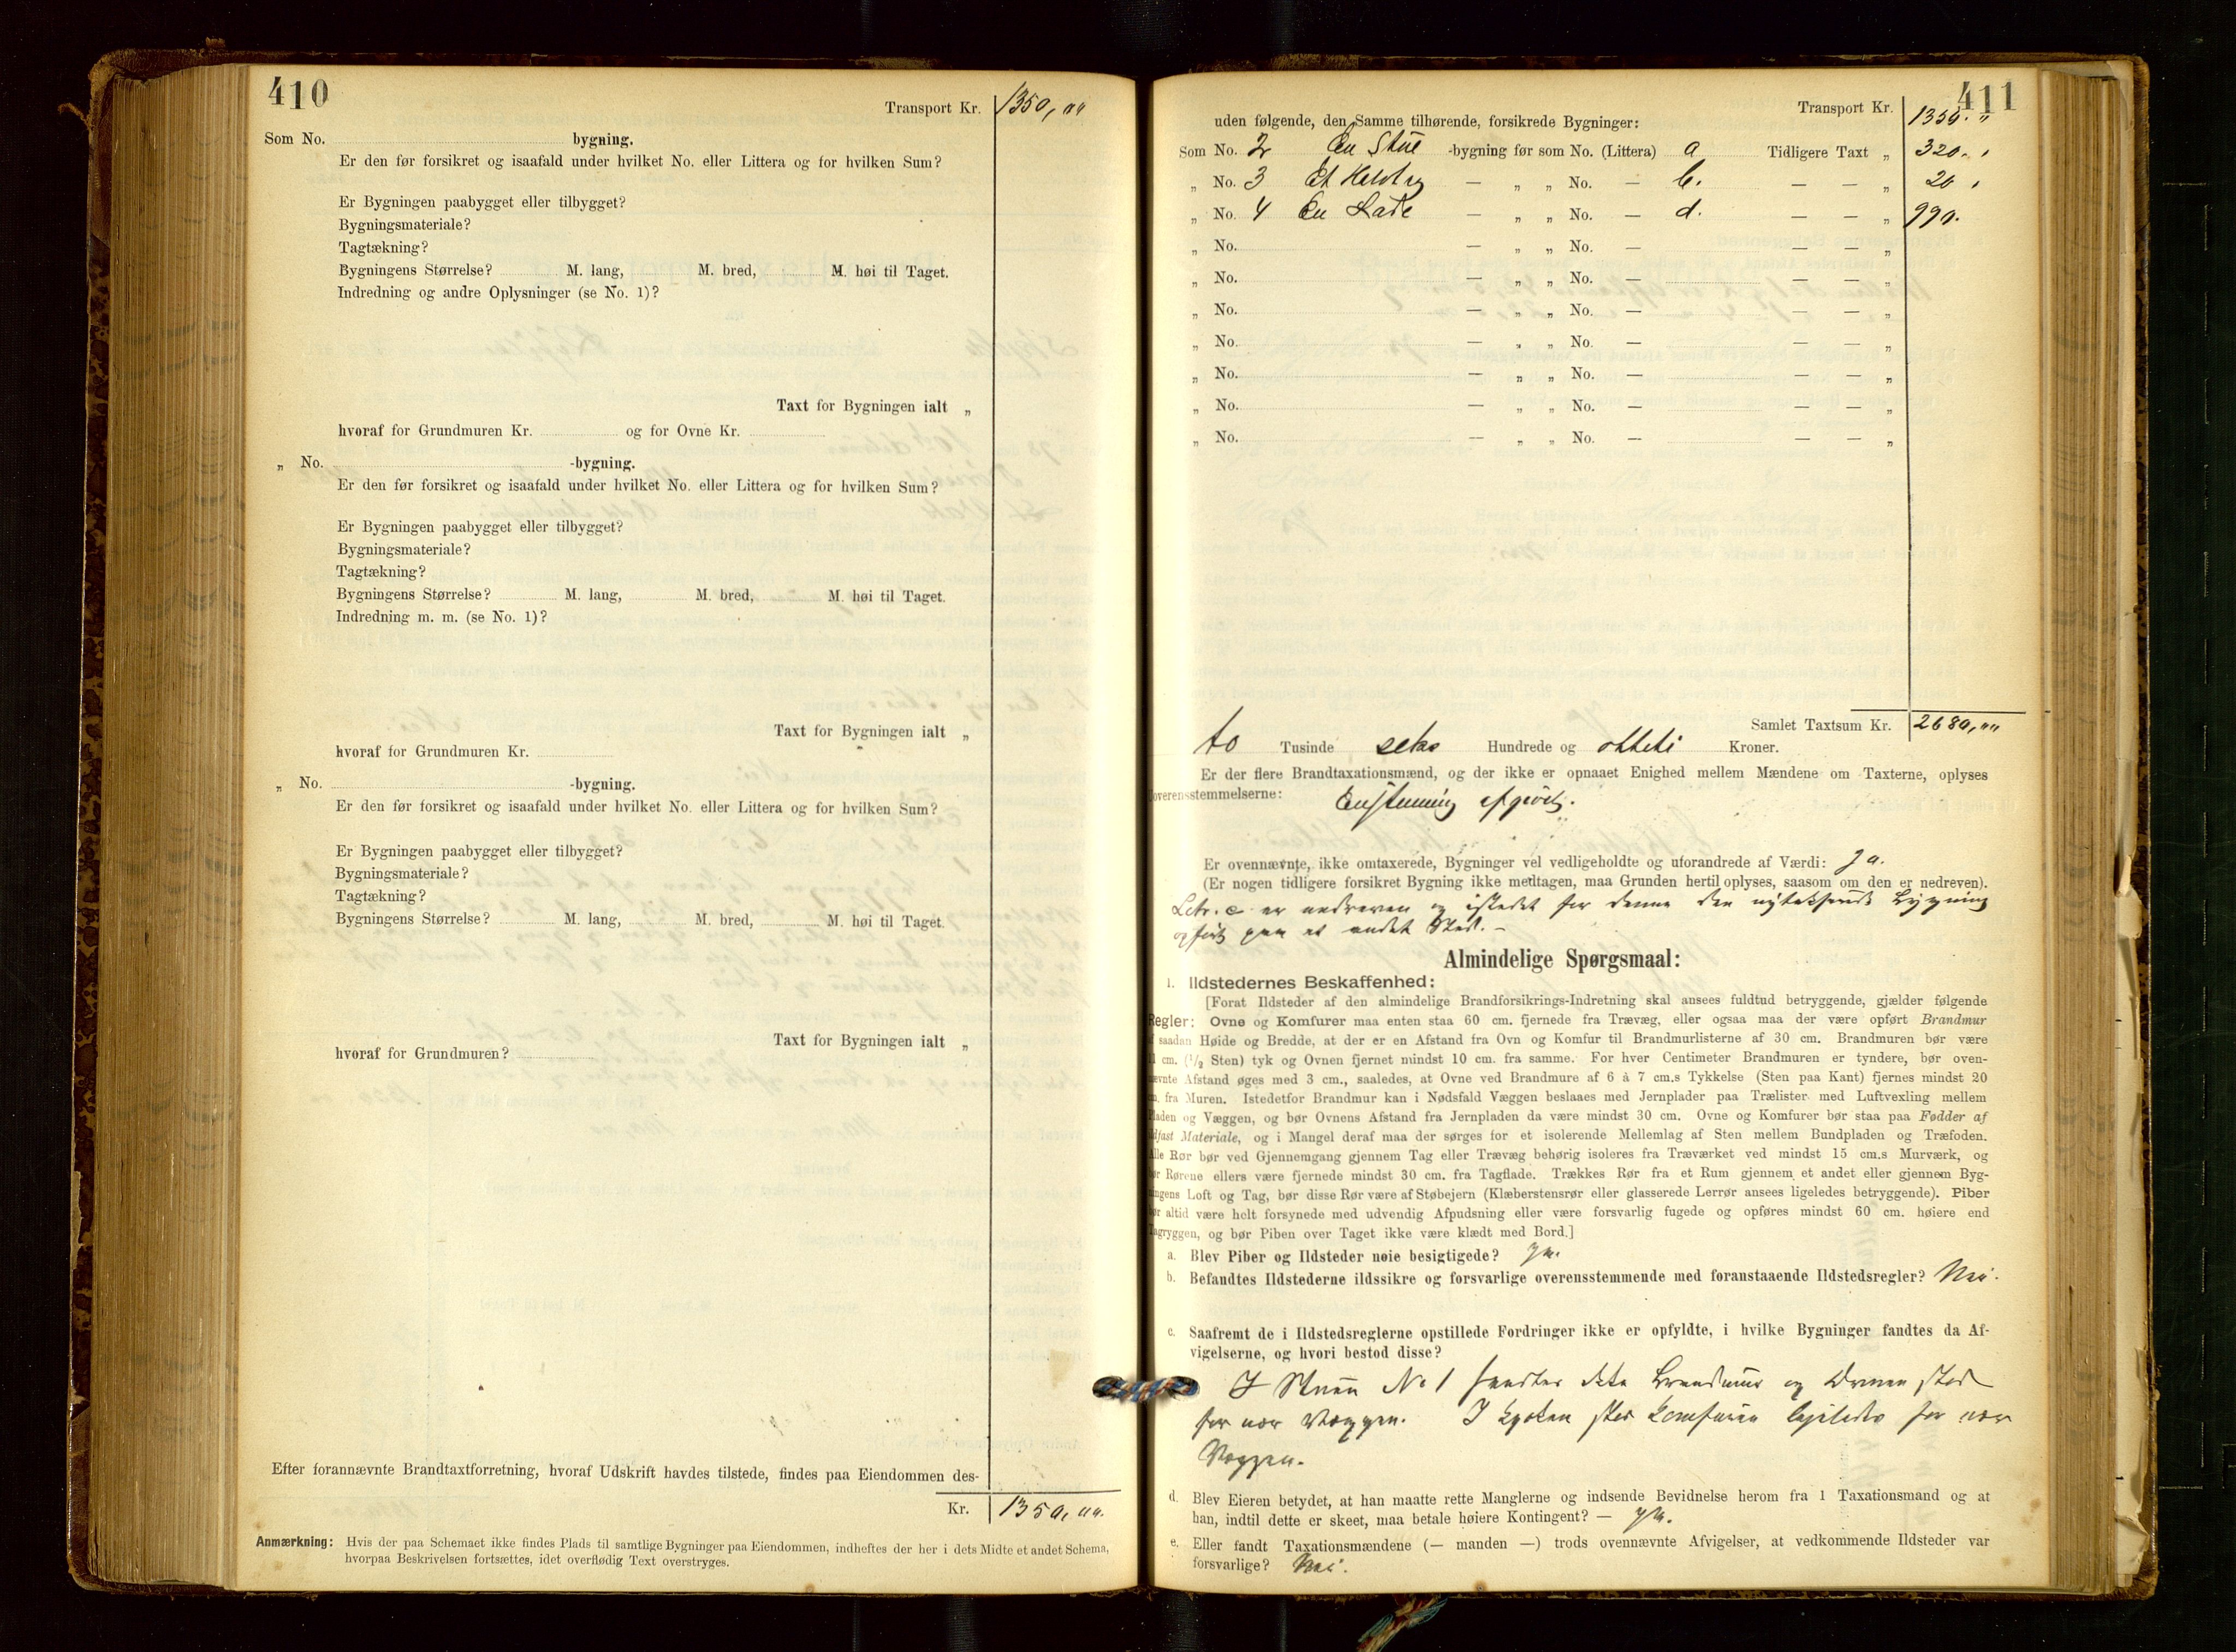 410
Transport Kr. 1350, „„
Som No. bygning.
Er den før forsikret og isaafald under hvilket No. eller Littera og for hvilken Sum?
Er Bygningen paabygget eller tilbygget?
Bygningsmateriale?
Tagtækning?
Bygningens Størrelse? M. lang, M. bred, M. høi til Taget.
Indredning og andre Oplysninger (se No. 1)?
Taxt for Bygningen ialt „
hvoraf for Grundmuren Kr. og for Ovne Kr.
„ No. -bygning.
Er den før forsikret og isaafald under hvilket No. eller Littera og for hvilken Sum?
Er Bygningen paabygget eller tilbygget?
Bygningsmateriale?
Tagtækning?
Bygningens Størrelse? M. lang, M. bred, M. høi til Taget.
Indredning m. m. (se No. 1)?
Taxt for Bygningen ialt „
hvoraf for Grundmuren Kr.
„ No. -bygning.
Er den før forsikret og isaafald under hvilket No. eller Littera og for hvilken Sum?
Er Bygningen paabygget eller tilbygget?
Bygningsmateriale?
Tagtækning?
Bygningens Størrelse? M. lang, M. bred, M. høi til Taget.
Taxt for Bygningen ialt „
hvoraf for Grundmuren?
Efter forannævnte Brandtaxtforretning, hvoraf Udskrift havdes tilstede, findes paa Eiendommen des-
Kr. 1350, „„
Anmærkning: Hvis der paa Schemaet ikke findes Plads til samtlige Bygninger paa Eiendommen, indheftes der her i dets Midte et andet Schema,
hvorpaa Beskrivelsen fortsættes, idet overflødig Text overstryges.
411
Transport Kr. 1350. „
uden følgende, den Samme tilhørende, forsikrede Bygninger:
Som No. 2 En Stue -bygning før som No. (Littera) a Tidligere Taxt „ 320.
„ No. 3 Et — „ „ No. — b. — — „ 20
„ No. 4 En Lade — „ „ No. — d. — — „ 990.
„ No. — „ „ No. — — — „
„ No. — „ „ No. — — — „
„ No. — „ „ No. — — — „
„ No. — „ „ No. — — — „
„ No. — „ „ No. — — — „
„ No. — „ „ No. — — — „
„ No. — „ „ No. — — — „
Samlet Taxtsum Kr. 2680, „„
to Tusinde seks Hundrede og otteti Kroner.
Er der flere Brandtaxationsmænd, og der ikke er opnaaet Enighed mellem Mændene om Taxterne, oplyses
overensstemmelserne: Enstemmig afgjort.
Er ovennævnte, ikke omtaxerede, Bygninger vel vedligeholdte og uforandrede af Værdi: Ja.
(Er nogen tidligere forsikret Bygning ikke medtagen, maa Grunden hertil oplyses, saasom om den er nedreven).
Letr. c er nedreven og istedet for denne den nytakserede Bygning
opført paa et andet Sted. –
Almindelige Spørgsmaal:
1. Ildstedernes Beskaffenhed:
[Forat Ildsteder af den almindelige Brandforsikrings-Indretning skal ansees fuldtud betryggende, gjælder følgende
Regler: Ovne og Komfurer maa enten staa 60 cm. fjernede fra Trævæg, eller ogsaa maa der være opført Brandmur
saadan Høide og Bredde, at der er en Afstand fra Ovn og Komfur til Brandmurlisterne af 30 cm. Brandmuren bør være
cm. (1/2 Sten) tyk og Ovnen fjernet mindst 10 cm. fra samme. For hver Centimeter Brandmuren er tyndere, bør oven-
nævnte Afstand øges med 3 cm., saaledes, at Ovne ved Brandmure af 6 à 7 cm.s Tykkelse (Sten paa Kant) fjernes mindst 20
fra Muren. Istedetfor Brandmur kan i Nødsfald Væggen beslaaes med Jernplader paa Trælister med Luftvexling mellem
Pladen og Væggen, og bør Ovnens Afstand fra Jernpladen da være mindst 30 cm. Ovne og Komfurer bør staa paa Fødder af
ildfast Materiale, og i Mangel deraf maa der sørges for et isolerende Mellemlag af Sten mellem Bundpladen og Træfoden.
Alle Rør bør ved Gjennemgang gjennem Tag eller Trævæg behørig isoleres fra Træværket ved mindst 15 cm.s Murværk, og
bør Rørene ellers være fjernede mindst 30 cm. fra Tagflade. Trækkes Rør fra et Rum gjennem et andet eller gjennem Byg-
ningens Loft og Tag, bør disse Rør være af Støbejern (Klæberstensrør eller glasserede Lerrør ansees ligeledes betryggende). Piber
bør altid være helt forsynede med udvendig Afpudsning eller være forsvarlig fugede og opføres mindst 60 cm. høiere end
Tagryggen, og bør Piben over Taget ikke være klædt med Bord.]
a. Blev Piber og Ildsteder nøie besigtigede? Ja.
b. Befandtes Ildstederne ildssikre og forsvarlige overensstemmende med foranstaaende Ildstedsregler? Nei.
c. Saafremt de i Ildstedsreglerne opstillede Fordringer ikke er opfyldte, i hvilke Bygninger fandtes da Af-
vigelserne, og hvori bestod disse?
I Stuen No 1 fandtes ikke Brandmur og Ovnen stod
for nær Væggen. I Kjøken stod Komfuren ligeledes for nær
Væggen.
d. Blev Eieren betydet, at han maatte rette Manglerne og indsende Bevidnelse herom fra 1 Taxationsmand og at
han, indtil dette er skeet, maa betale høiere Kontingent? — Ja.
e. Eller fandt Taxationsmændene (— manden —) trods ovennævnte Afvigelser, at vedkommende Ildsteder var
forsvarlige? Nei.